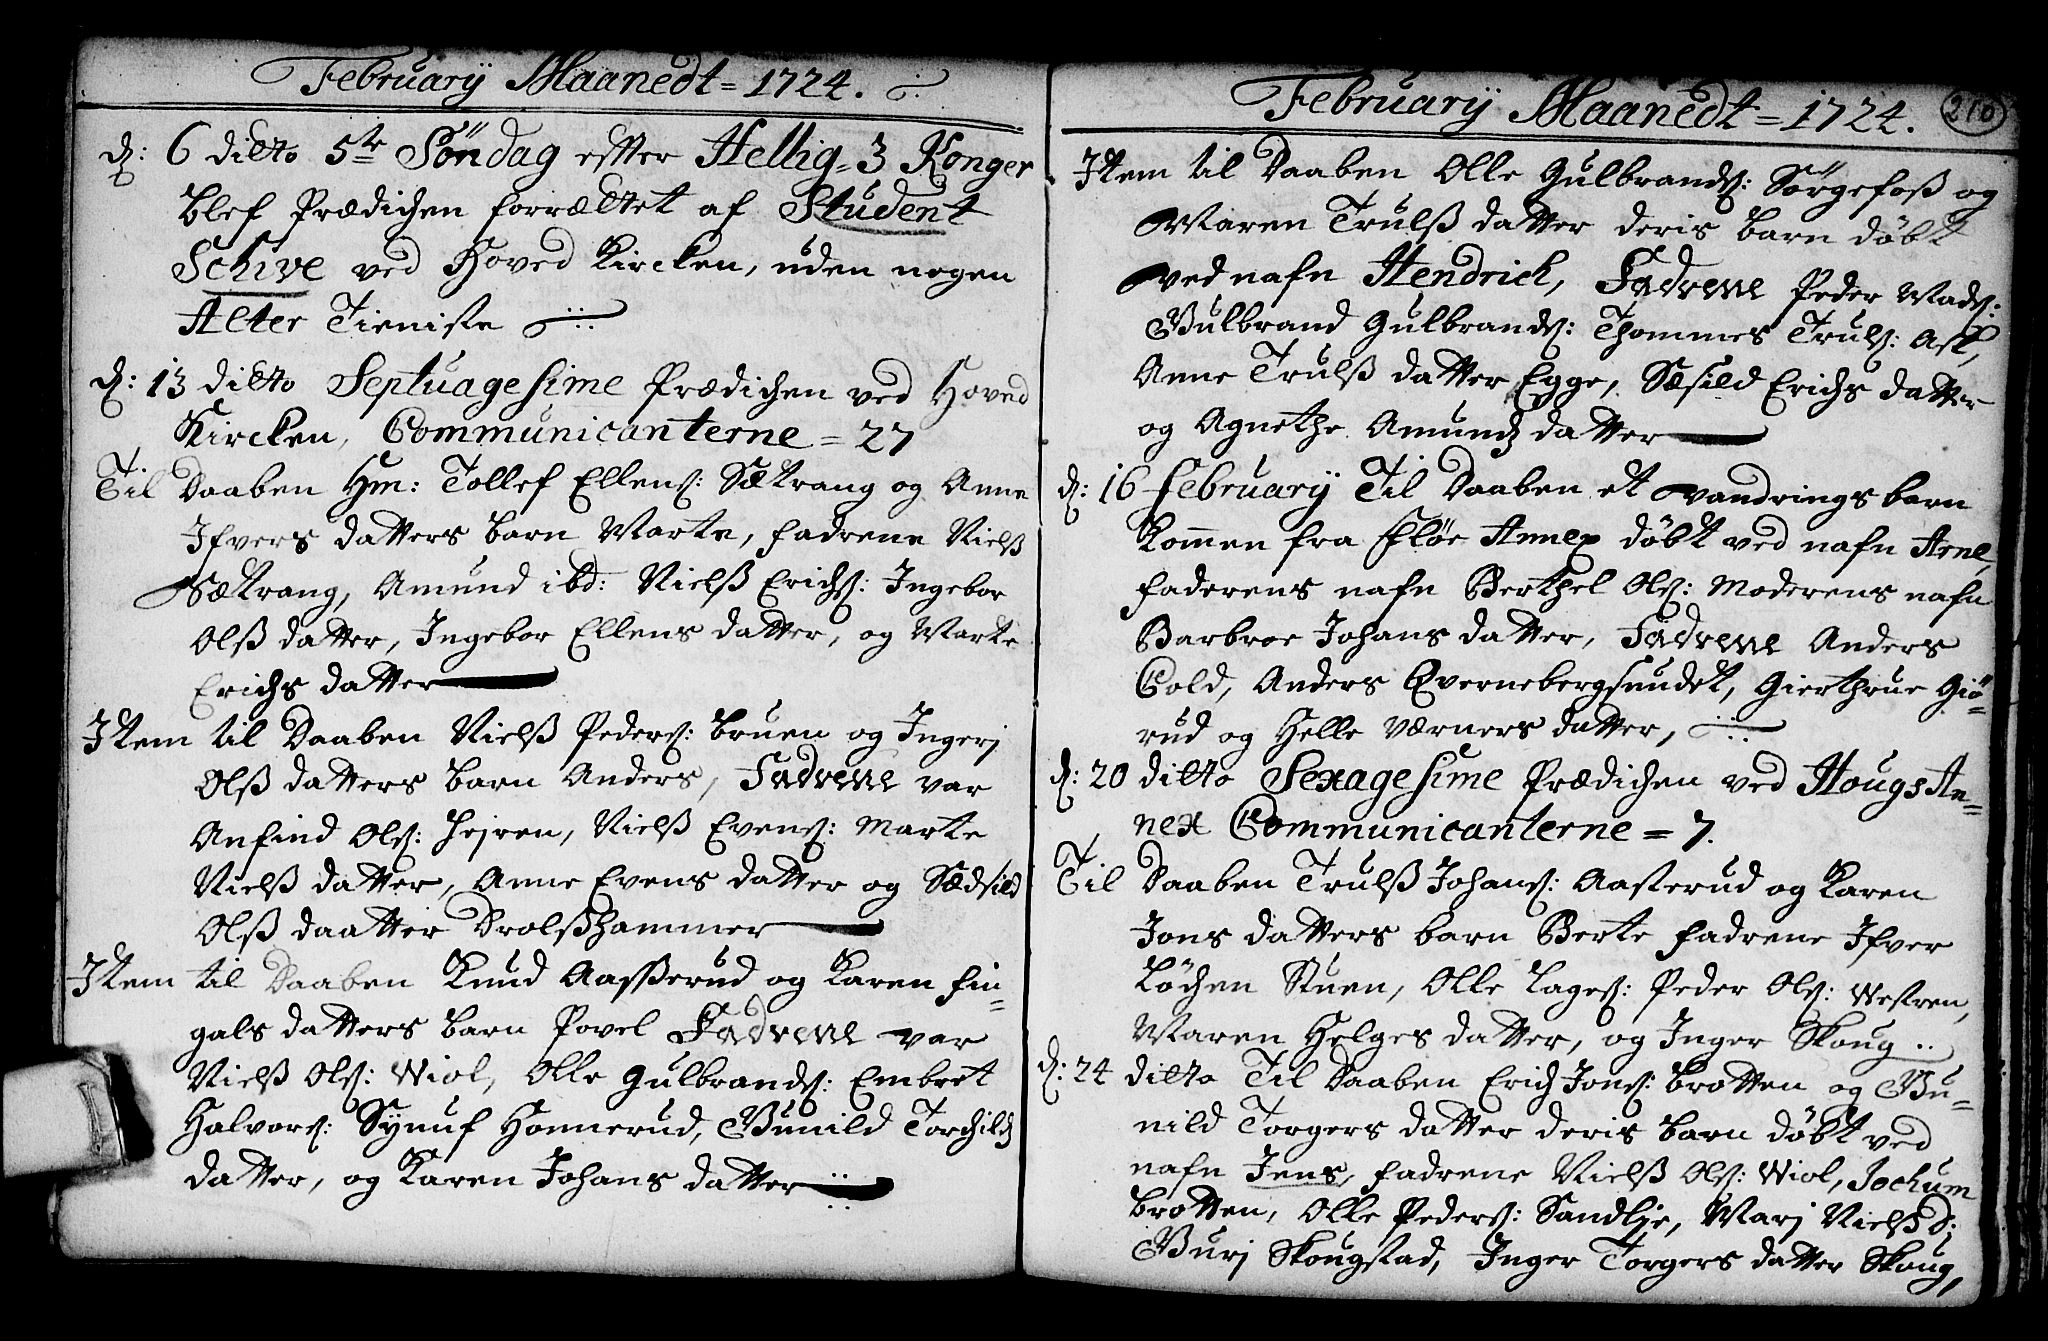 Februarÿ Maanedt = 1724.
d: 6 ditto 5te Söndag efter Hellig=3 Konger
blef Prædichen forrættet af Student
Schive ved Hoved Kircken, uden nogen
Alter Tieniste
d: 13 ditto Septuagesime Prædichen ved Hoved
Kircken, Communicanterne = 27
Til Daaben Hm: Tollef Ellens: Sætrang og Anne
Ifvers datters barn Marte, fadrene Nielß
Sætrang, Amund ibd: Nielß Erichs: Ingebor
Olß datter, Ingebor Ellens datter, og Marte
Erichs datter
Item til Daaben Nielß Peders: bruen og Ingerj
Olß datters barn Anders, Fadrene var
Anfind Ols: Hejren, Nielß Evens: Marte
Nielß datter, Anne Evens datter og Sædsild
Olß daatter Drolßhammer
Item til Daaben Knud Aaßerud og Karen Fin=
gals datters barn Povel Fadrene var
Nielß Ols: Wiol, Olle Gulbrands: Embret
Halvors: Synuf Honnerud, Gunild Torchilds
datter, og Karen Johans datter
Februarÿ Maanedt = 1724.
210
Item til Daaben Olle Gulbrands: Sörgefoß og
Maren Trulß datter deris barn döbt
ved nafn Hendrich, Fadrene Peder Mads:
Gulbrand Gulbrands: Thommes Truls: Ask,
Anne Trulß datter Egge, Sæsild Erichs datter
og Agnethe Amunds datter
d: 16 Februarÿ Til Daaben et vandrings barn
kommen fra Fløe Annex döbt ved nafn Arne,
faderens nafn Berthel Ols: Moderens nafn
Barbroe Johans datter, Fadrene Anders
Gold, Anders Qvernebergsundet, Gierthrue Giö=
rud og Helle Værners datter,
d: 20 ditto Sexagesime Prædichen ved Hougs An=
nex Communicanterne = 7.
Til Daaben Trulß Johans: Aasterud og Karen
Jons datters barn Berte fadrene Ifver
Löchen Stuen, Olle Lages: Peder Ols: Westren,
Maren Helges datter, og Inger Skoug ..
d: 24 ditto Til Daaben Erich Jons: Brotten og Gu=
nild Torgers datter deris barn döbt ved
nafn Jens, fadrene Nielß Ols: Wiol, Jochum
Brotten, Olle Peders: Sandlje, Marj Nielß D:
Gurj Skougstad, Inger Torgers datter Skoug,